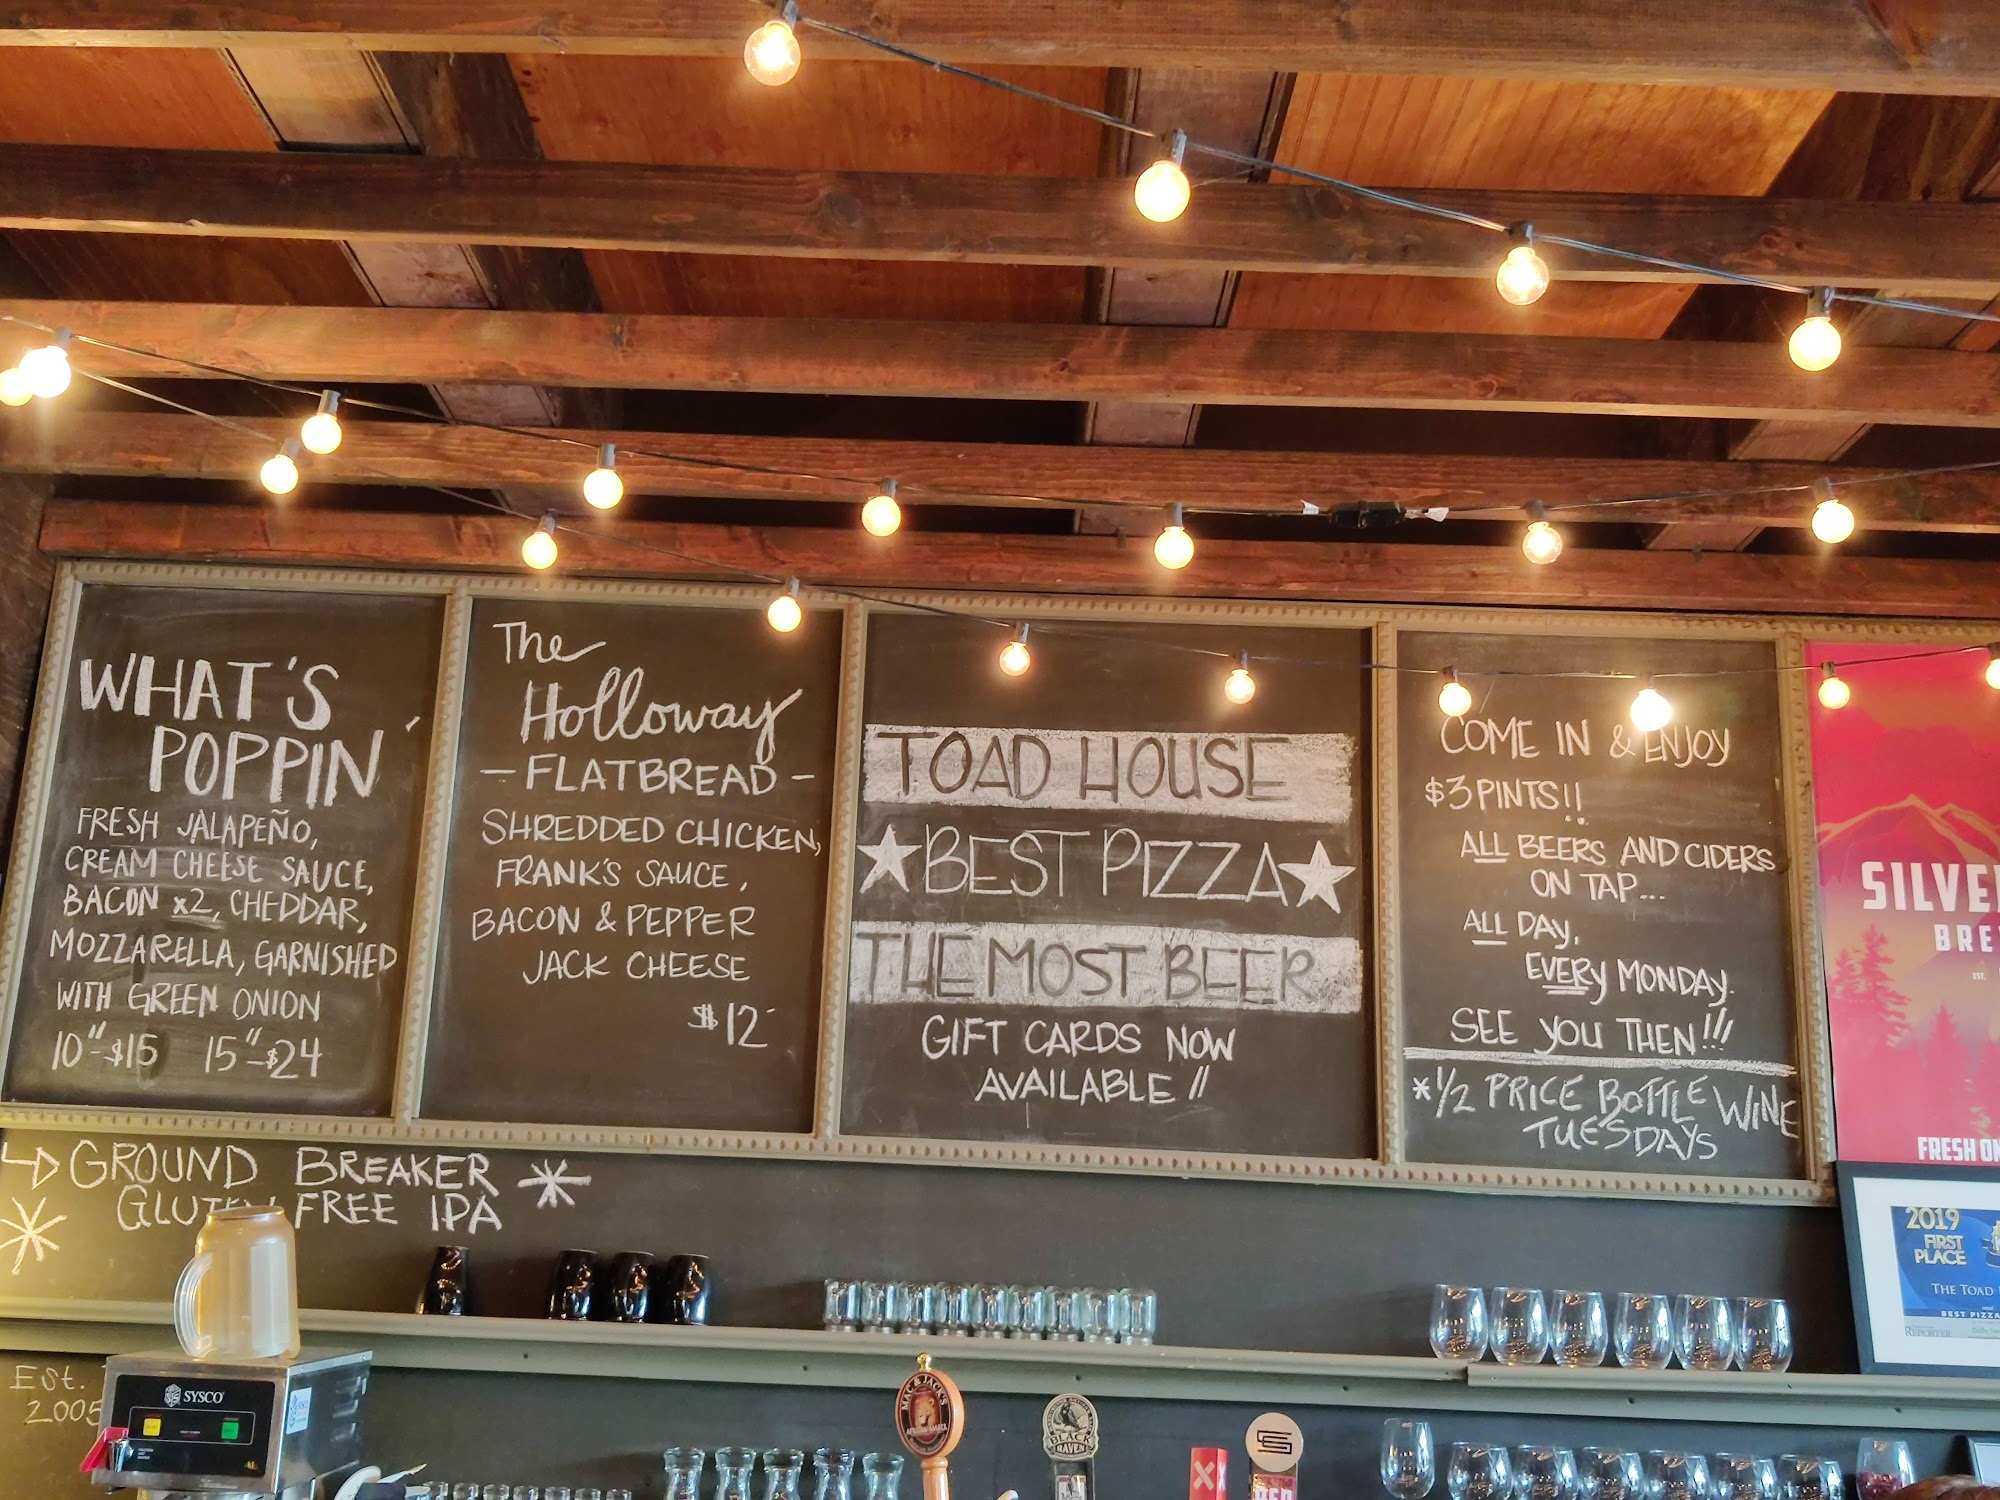 WHAT'S
POPPIN'
FRESH JALAPEÑO,
CREAM CHEESE SAUCE,
BACON x2, CHEDDAR,
MOZZARELLA, GARNISHED
WITH GREEN ONION
10"-$15 15"-$24
The
Holloway
- FLATBREAD -
SHREDDED CHICKEN,
FRANK'S SAUCE,
BACON & PEPPER
JACK CHEESE
$12
TOAD HOUSE
BEST PIZZA
THE MOST BEER
GIFT CARDS NOW
AVAILABLE!!
COME IN & ENJOY
$3 PINTS!!
ALL BEERS AND CIDERS
ON TAP...
ALL DAY,
EVERY MONDAY.
SEE YOU THEN!!!
*1/2 PRICE BOTTLE WINE
TUESDAYS
GROUND BREAKER
FREE IPA
EST.
2005
SYSCO
MAC & JACK'S
BLACK
RAVEN
FRESH
2019
FIRST
PLACE
THE TOAD
BEST PIZZA
REPORTER